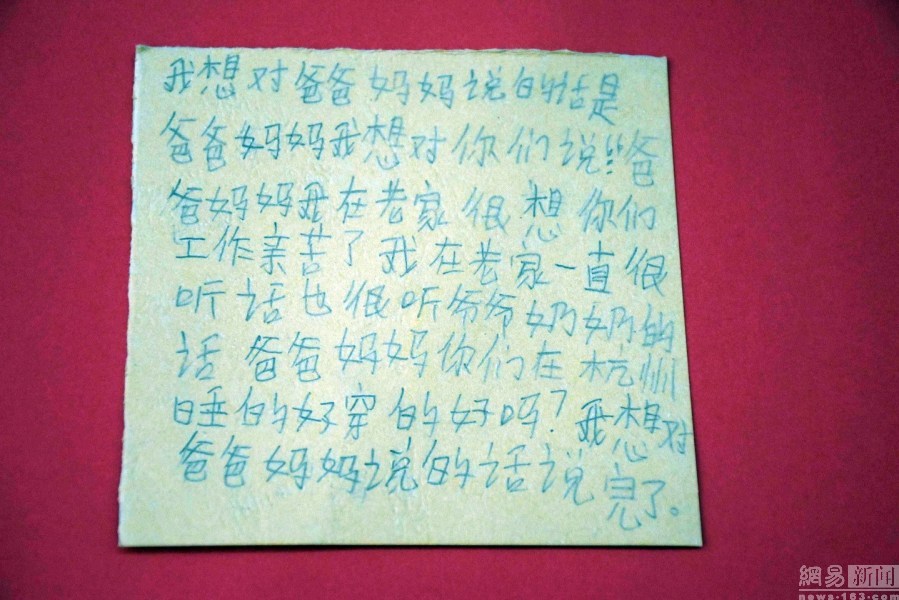 我想对爸爸妈妈说的话是
爸爸妈妈我想对你们说!!爸
爸妈妈我在老家很想你们
工作亲苦了我在老家一直很
听话也很听爷爷奶奶的
话 爸爸妈妈你们在杭州
睡的好穿的好吗?我想对
爸爸妈妈说的话说
完了。
網易 新闻
news.163.com